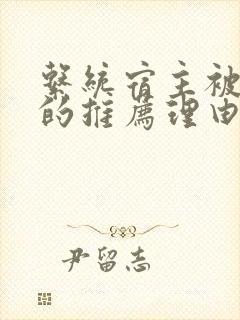 繫統宿主被
的推薦理由
尹留志